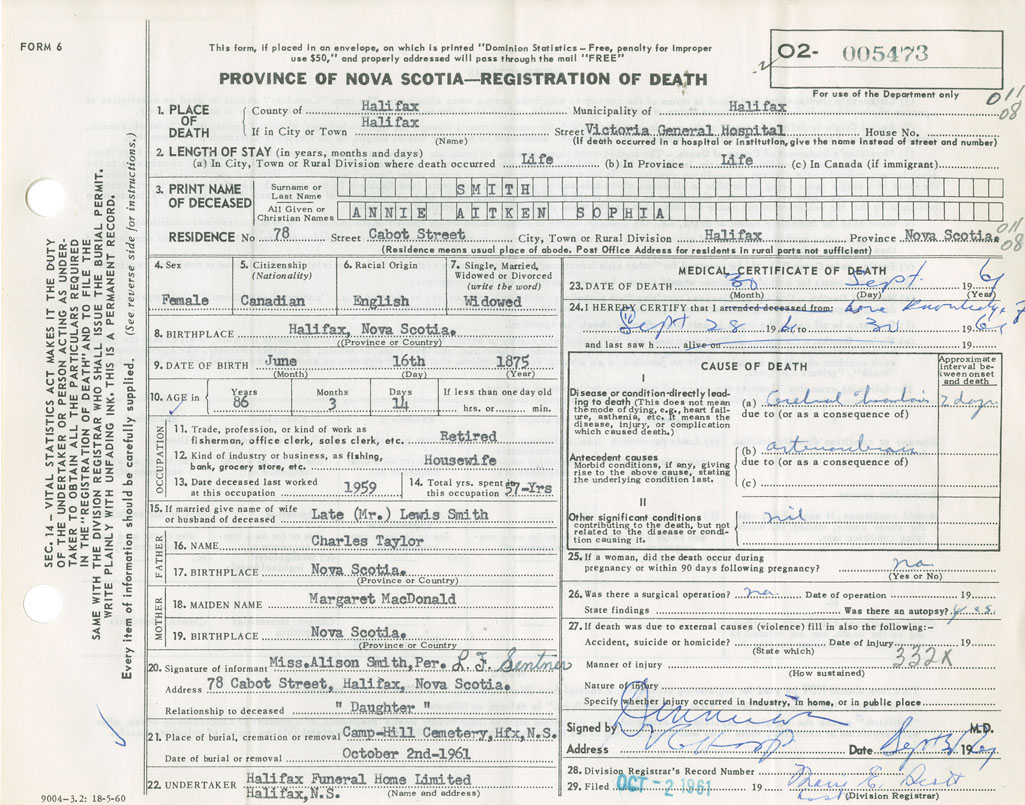 FORM 6
This form, if placed in an envelope, on which is printed "Dominion Statistics – Free, penalty for improper
use $50," and properly addressed will pass through the mail "FREE"
O2- 005473
For use of the Department only
PROVINCE OF NOVA SCOTIA—REGISTRATION OF DEATH
011
08
1. PLACE OF DEATH
County of Halifax Municipality of Halifax
If in City or Town Halifax Street Victoria General Hospital House No.
(Name) (If death occurred in a hospital or institution, give the name instead of street and number)
2. LENGTH OF STAY (in years, months and days)
(a) In City, Town or Rural Division where death occurred Life (b) In Province Life (c) In Canada (if immigrant)
3. PRINT NAME OF DECEASED
Surname or Last Name SMITH
All Given or Christian Names ANNIE AITKEN SOPHIA
RESIDENCE No 78 Street Cabot Street City, Town or Rural Division Halifax Province Nova Scotia.
011
08
(Residence means usual place of abode. Post Office Address for residents in rural parts not sufficient)
4. Sex
Female
5. Citizenship
(Nationality)
Canadian
6. Racial Origin
English
7. Single, Married,
Widowed or Divorced
(write the word)
Widowed
8. BIRTHPLACE Halifax, Nova Scotia.
(Province or Country)
9. DATE OF BIRTH June 16th 1875
(Month) (Day) (Year)
10. AGE in Years Months Days If less than one day old
86 3 14 hrs. or min.
OCCUPATION
11. Trade, profession, or kind of work as
fisherman, office clerk, sales clerk, etc. Retired
12. Kind of industry or business, as fishing,
bank, grocery store, etc. Housewife
13. Date deceased last worked
at this occupation 1959
14. Total yrs. spent in
this occupation 57-Yrs
15. If married give name of wife
or husband of deceased Late (Mr.) Lewis Smith
FATHER
16. NAME Charles Taylor
17. BIRTHPLACE Nova Scotia.
(Province or Country)
MOTHER
18. MAIDEN NAME Margaret MacDonald
19. BIRTHPLACE Nova Scotia.
(Province or Country
20. Signature of informant Miss.Alison Smith,Per. L. F. Sentner
Address 78 Cabot Street, Halifax, Nova Scotia.
Relationship to deceased " Daughter "
21. Place of burial, cremation or removal Camp-Hill Cemetery,Hfx,N.S.
Date of burial or removal October 2nd-1961
22. UNDERTAKER Halifax Funeral Home Limited
Halifax,N.S. (Name and address)
MEDICAL CERTIFICATE OF DEATH
23. DATE OF DEATH 30 Sept. 1961
(Month) (Day) (Year)
24. I HEREBY CERTIFY that I attended deceased from: have knowledge of
Sept 28 1961 to 30 1961
and last saw h alive on
CAUSE OF DEATH
Approximate interval between onset and death
I
Disease or condition directly leading to death (This does not mean the mode of dying, e.g., heart failure, asthenia, etc. It means the disease, injury, or complication which caused death.)
(a) Cerebral 2 days
due to (or as a consequence of)
Antecedent causes
Morbid conditions, if any, giving rise to the above cause, stating the underlying condition last.
(b)
due to (or as a consequence of)
(c)
II
Other significant conditions
contributing to the death, but not related to the disease or condition causing it.
nil
25. If a woman, did the death occur during
pregnancy or within 90 days following pregnancy? no
(Yes or No)
26. Was there a surgical operation? no Date of operation 19
State findings Was there an autopsy? yes
27. If death was due to external causes (violence) fill in also the following:–
Accident, suicide or homicide? Date of injury 19
(State which)
332X
Manner of injury
(How sustained)
Nature of injury
Specify whether injury occurred in industry, in home, or in public place
Signed by M.D.
Address V G Hosp Date Sept 30 1961
28. Division Registrar's Record Number
29. Filed OCT - 2 1961 19 Mary E. Scott
(Division Registrar)
SEC. 14 – VITAL STATISTICS ACT MAKES IT THE DUTY
OF THE UNDERTAKER OR PERSON ACTING AS UNDER-
TAKER TO OBTAIN ALL THE PARTICULARS REQUIRED
IN THE "REGISTRATION OF DEATH" AND TO FILE THE
SAME WITH THE DIVISION REGISTRAR WHO SHALL ISSUE THE BURIAL PERMIT.
WRITE PLAINLY WITH UNFADING INK. THIS IS A PERMANENT RECORD.
Every item of information should be carefully supplied. (See reverse side for instructions.)
9004–3.2: 18-5-60